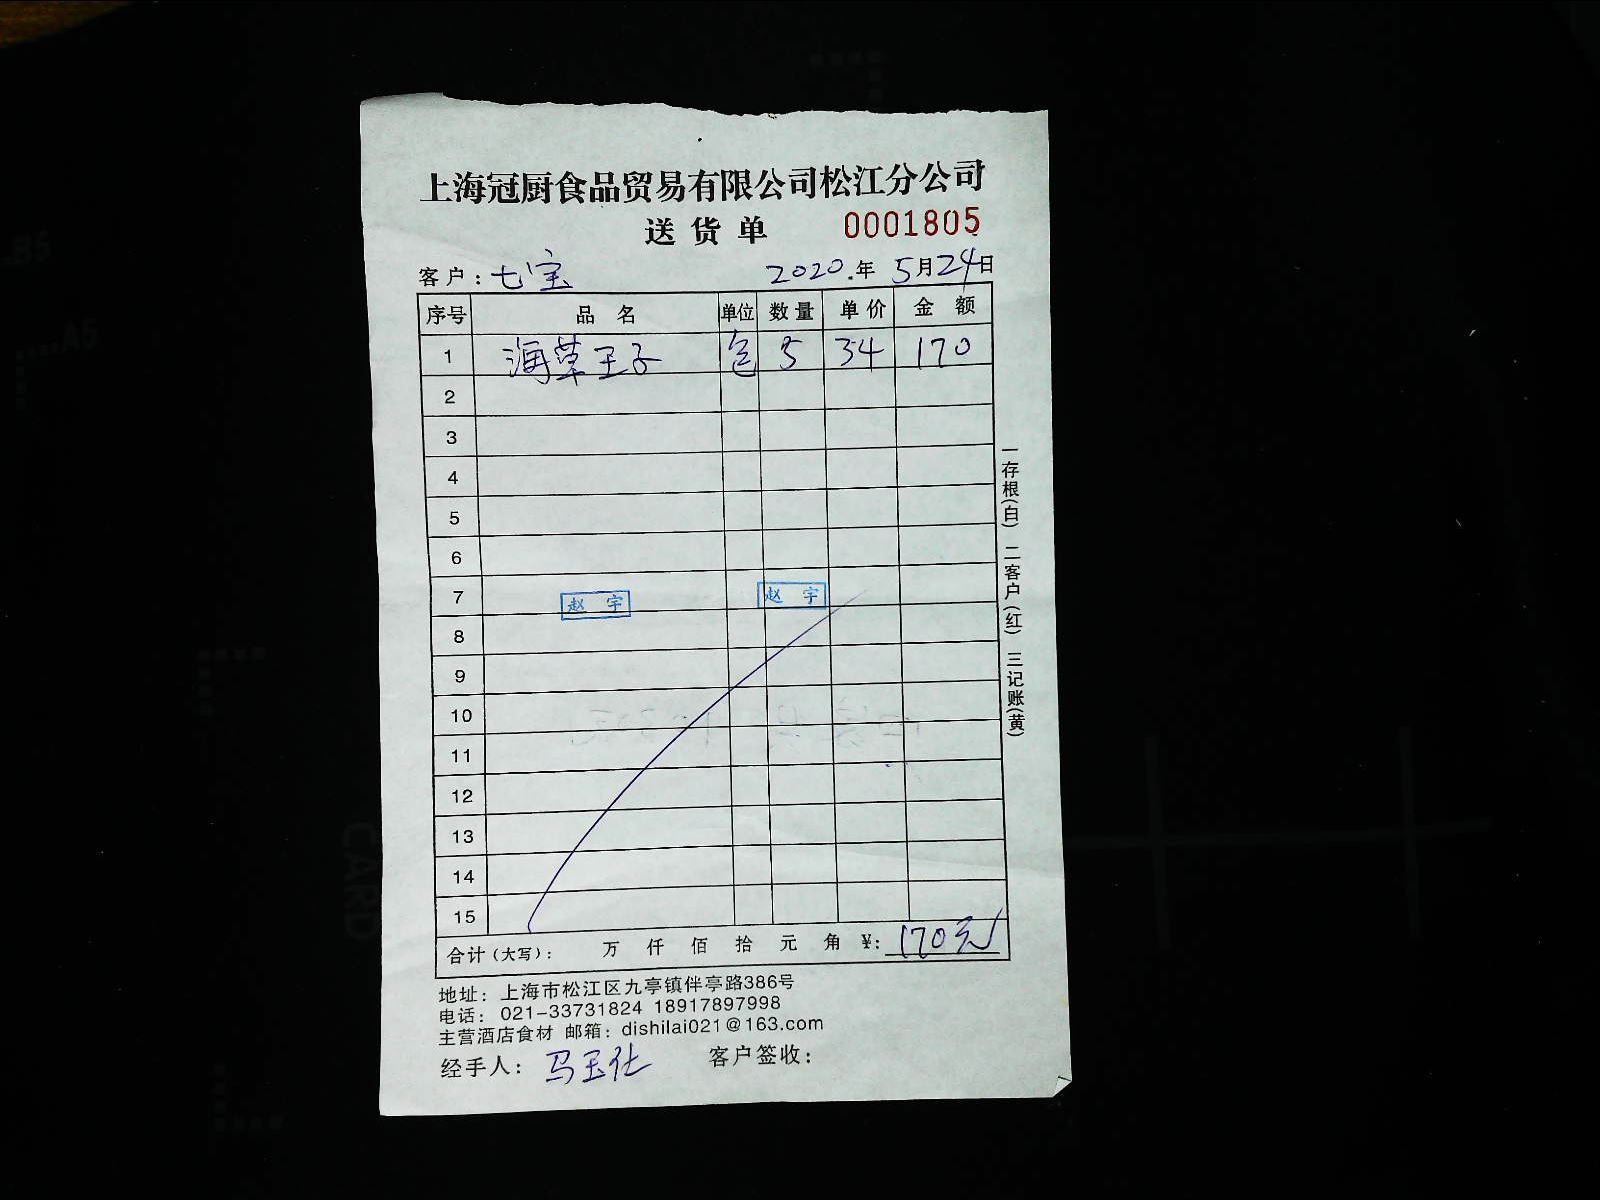 上海冠厨食品贸易有限公司松江分公司
送货单 0001805
客户:七宝 2020.年 5月24日
序号 品名 单位 数量 单价 金额
1 海草王子 包 5 34 170
2
3
4
5
6
7
赵宇 赵宇
8
9
10
11
12
13
14
15
合计(大写): 万 仟 佰 拾 元 角 ¥: 170元
地址: 上海市松江区九亭镇伴亭路386号
电话: 021-33731824 18917897998
主营酒店食材 邮箱: dishilai021@163.com
经手人: 马玉仕 客户签收:
一存根(白) 二客户(红) 三记账(黄)
B5
A5
CARD